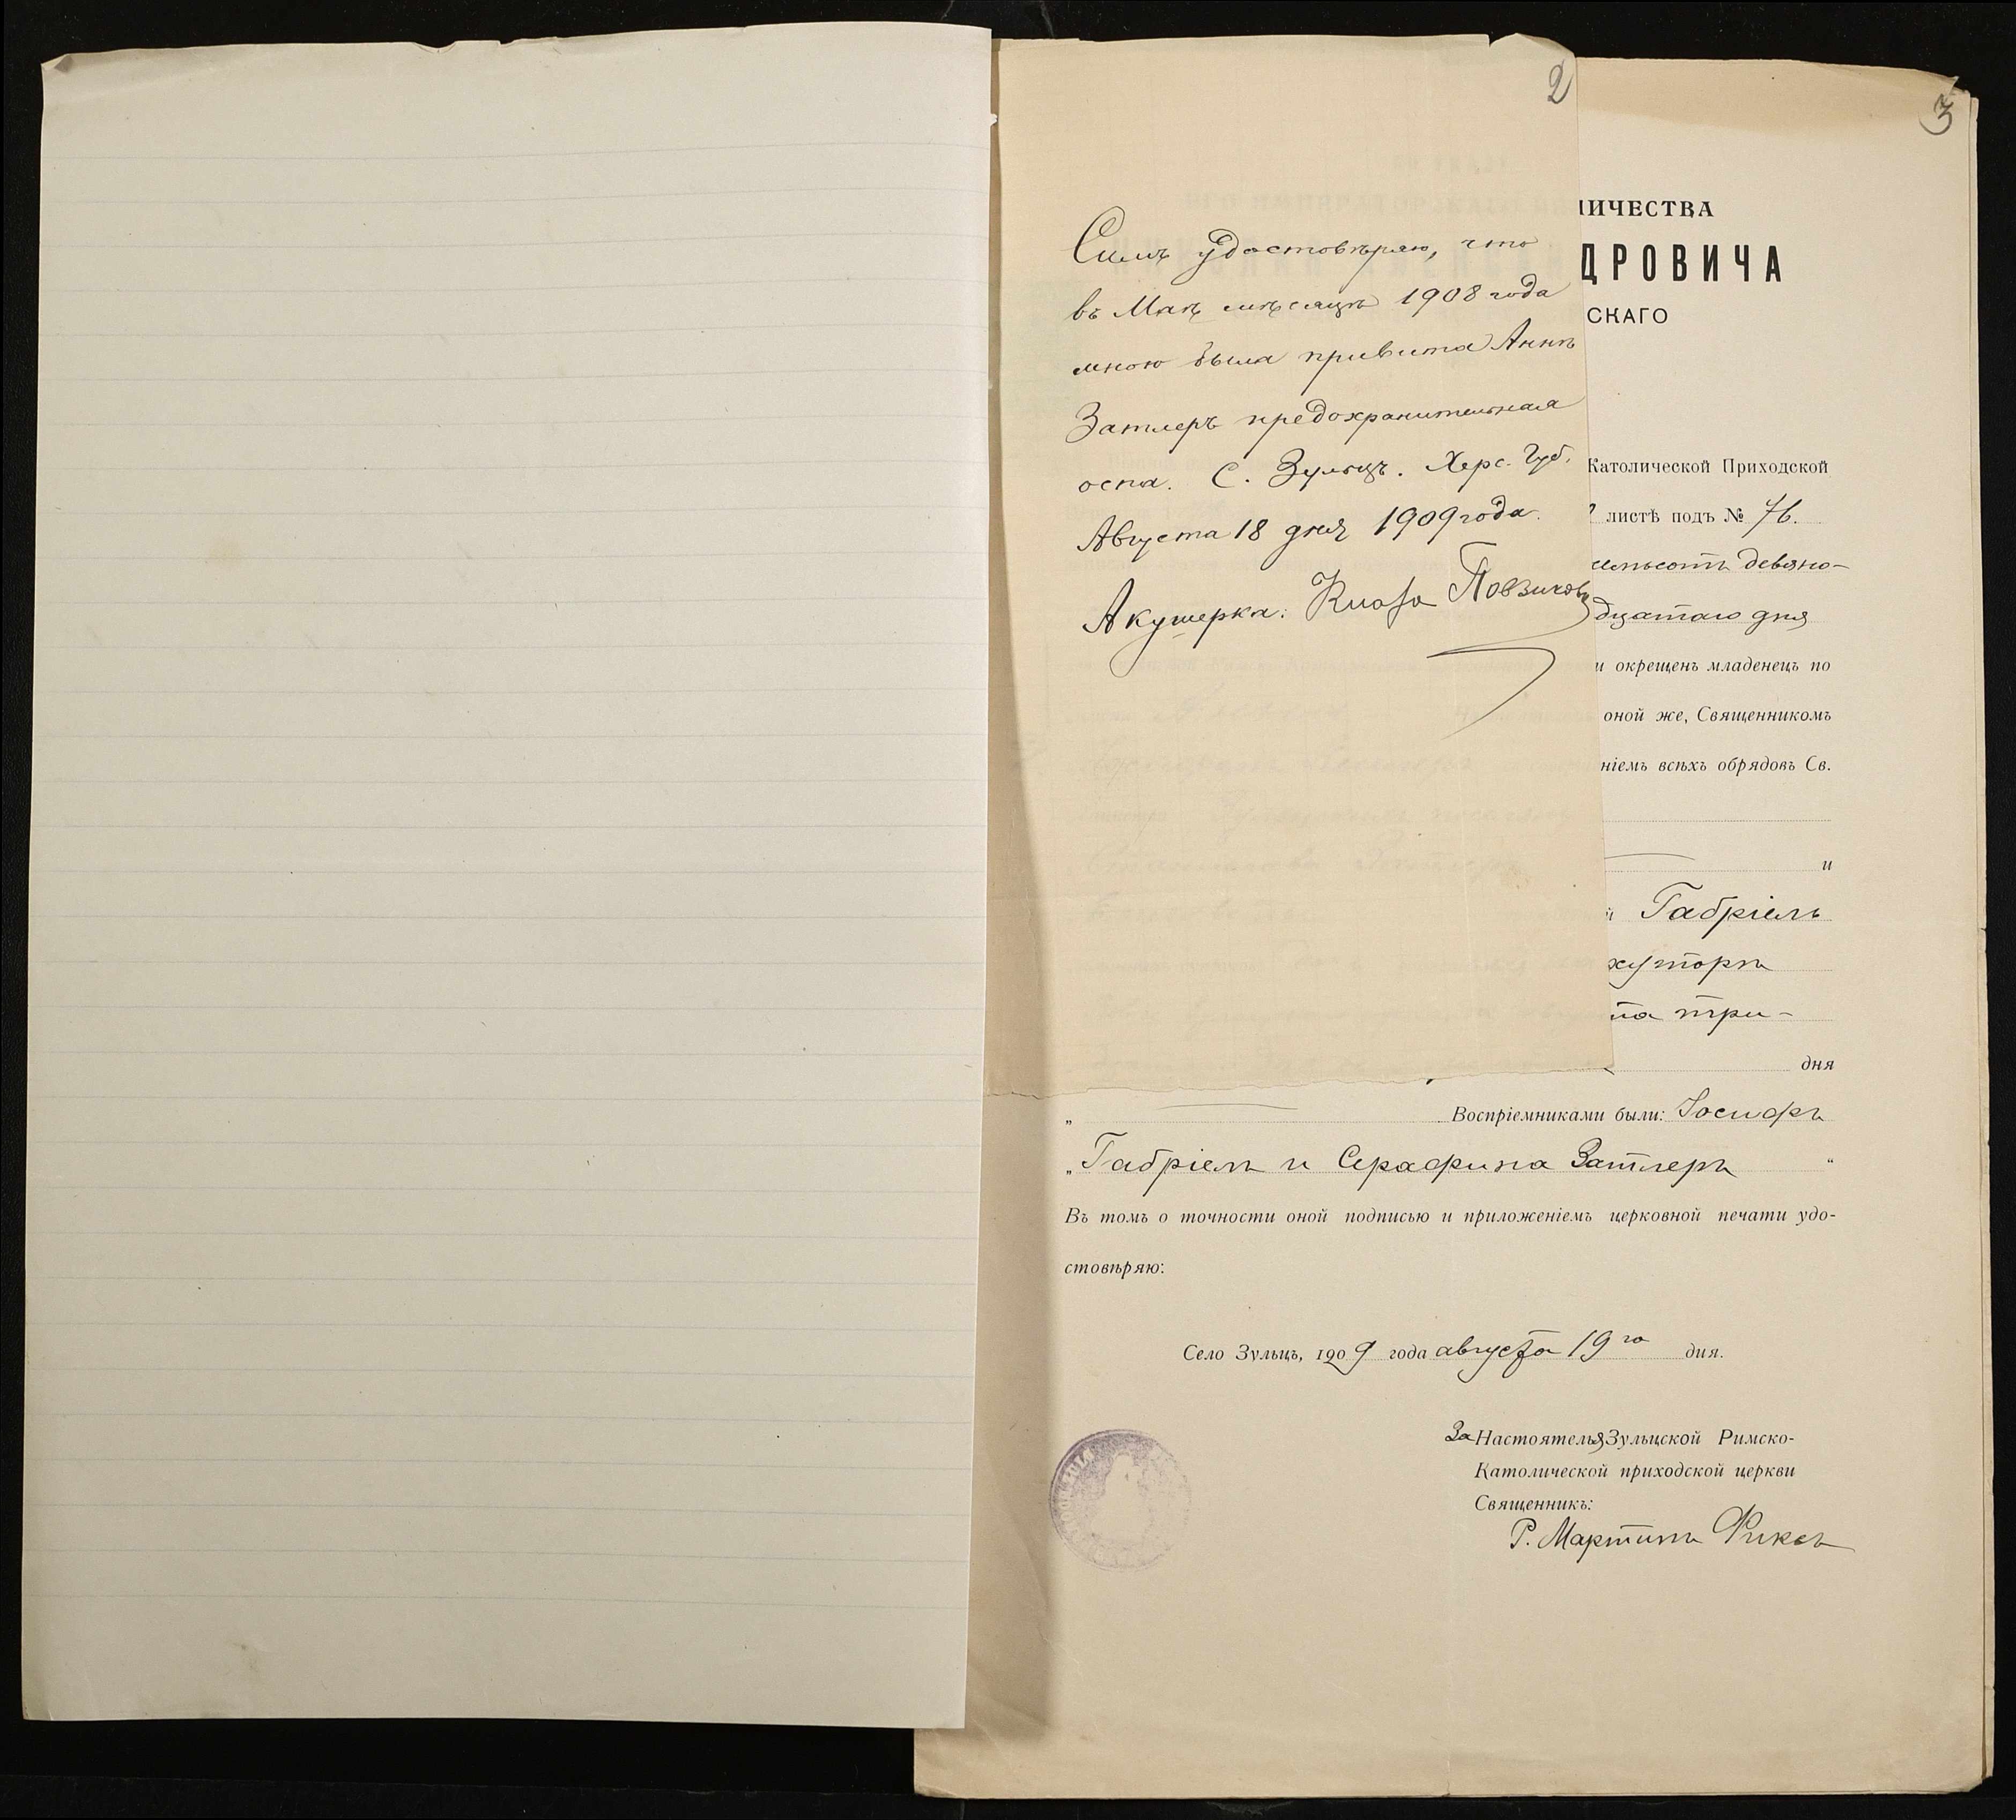 2
Симъ удостовѣряю, что
въ Маѣ мѣсяцѣ 1908 года
мною была привита Аннѣ
Затлеръ предохранительная
оспа. С. Зульцъ. Херс. Губ.
Августа 18 дня 1909 года.
Акушерка:
3
ИЧЕСТВА
ДРОВИЧА
СКАГО
Католической Приходской
листѣ подъ №
девяно-
дцатаго дня
и окрещенъ младенецъ по
оной же, Священникомъ
ніемъ всѣхъ обрядовъ Св.
и
Габріель
хуторѣ
три-
дня
„ Воспріемниками были: Іосифъ
„Габріель и Серафина Затлеръ “
Въ томъ о точности оной подписью и приложеніемъ церковной печати удо-
стовѣряю:
Село Зульцъ, 1909 года августа 19го дня.
За Настоятеля Зульцской Римско-
Католической приходской церкви
Священникъ:
Р. Мартинъ Фиксъ